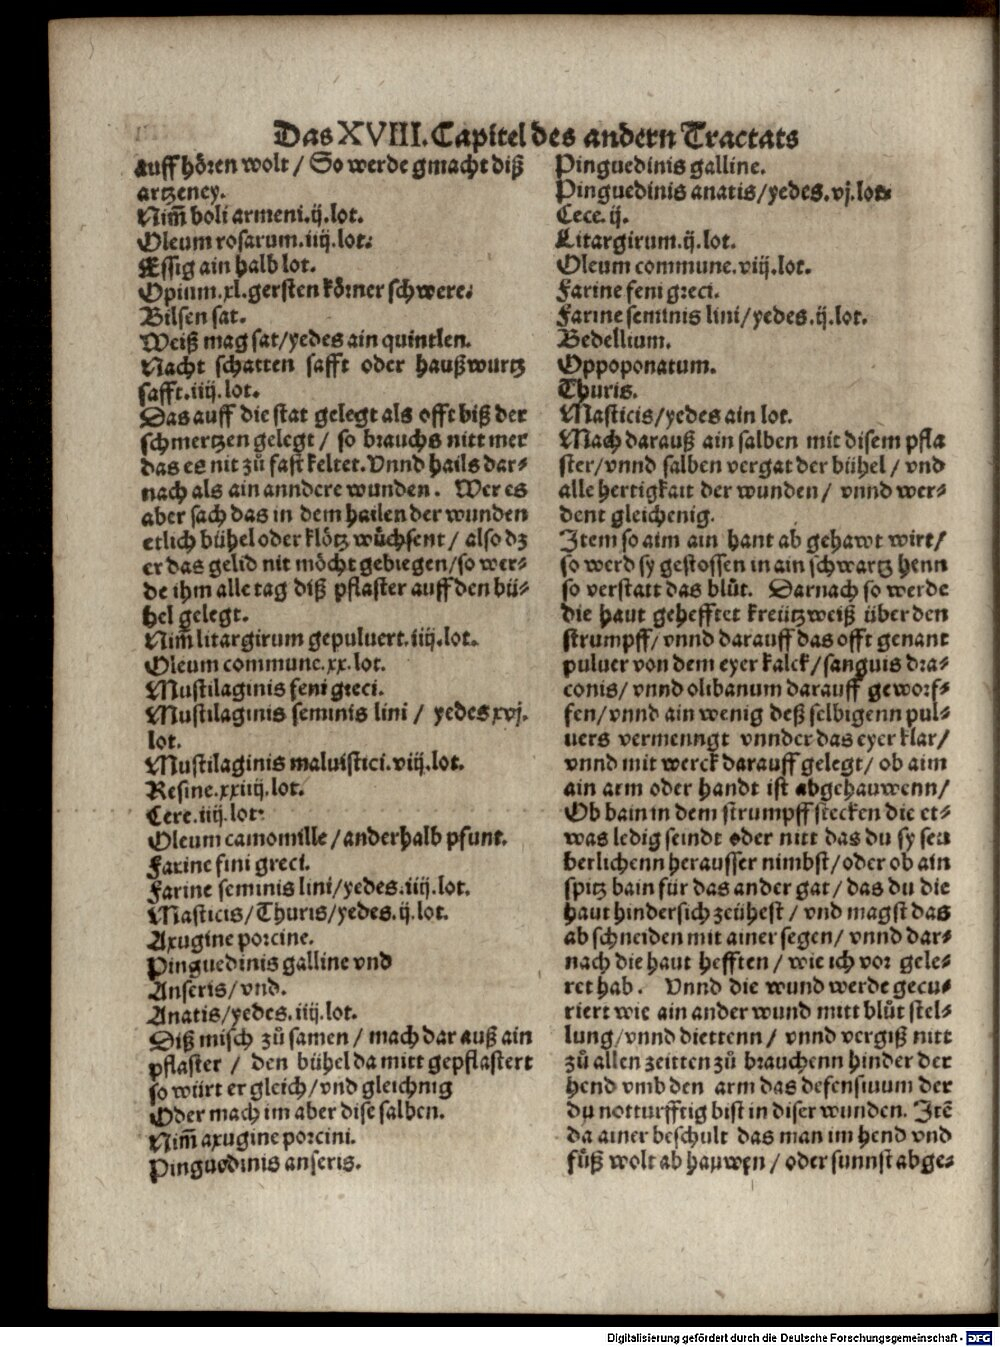 Das XVIII. Capitel des andern Tractats
auff hören wolt / So werde gmacht diß
artzeney.
Nim̃ boli armeni.ij.lot.
Oleum rosarum.iiij.lot.
Essig ain halb lot.
Opium.xl.gersten körner schwere.
Bilsen sat.
Weiß mag sat/yedes ain quintlen.
Nacht schatten safft oder haußwurtz
safft.iiij.lot.
Das auff die stat gelegt als offt biß der
schmertzen gelegt / so brauchs nitt mer
das es nit zů fast keltet. Vnnd hails dar⸗
nach als ain anndere wunden. Wer es
aber sach das in dem hailen der wunden
etlich bühel oder klötz wůchsent / also dz
er das gelid nit möcht gebiegen/so wer⸗
de ihm alle tag diß pflaster auff den bü⸗
hel gelegt.
Nim̃ litargirum gepuluert.iiij.lot.
Oleum commune.xx.lot.
Mustilaginis feni greci.
Mustilaginis seminis lini / yedes xvj.
lot.
Mustilaginis maluistici.viij.lot.
Resine.xxiiij.lot.
Cere.iiij.lot.
Oleum camomille / anderhalb pfunt.
Farine fini greci.
Farine seminis lini/yedes.iiij.lot.
Masticis/Thuris/yedes.ij.lot.
Axugine porcine.
Pinguedinis galline vnd
Anseris/vnd.
Anatis/yedes.iiij.lot.
Diß misch zů samen / mach dar auß ain
pflaster / den bühel da mitt gepflastert
so würt er gleich/vnd gleichnig
Oder mach im aber dise salben.
Nim̃ axugine porcini.
Pinguedinis anseris.
Pinguedinis galline.
Pinguedinis anatis/yedes.vj.lot.
Cece.ij.
Litargirum.ij.lot.
Oleum commune.viij.lot.
Farine feni greci.
Farine seminis lini/yedes.ij.lot.
Bedellium.
Oppoponatum.
Thuris.
Masticis/yedes ain lot.
Mach darauß ain salben mit disem pfla
ster/vnnd salben vergat der bühel / vnd
alle hertigkait der wunden / vnnd wer⸗
dent gleichenig.
Item so aim ain hant ab gehawt wirt/
so werd sy gestossen in ain schwartz henn
so verstatt das blůt. Darnach so werde
die haut gehefftet kreützweiß über den
strumpff/vnnd darauff das offt genant
puluer von dem eyer kalck/sanguis dra⸗
conis/vnnd olibanum darauff geworf⸗
fen/vnnd ain wenig deß selbigenn pul⸗
uers vermenngt vnnder das eyer klar/
vnnd mit werck darauff gelegt/ ob aim
ain arm oder handt ist abgehauwenn/
Ob bain in dem strumpff stecken die et⸗
was ledig seindt oder nitt das du sy seu
berlichenn herausser nimbst/oder ob ain
spitz bain für das ander gat / das du die
haut hindersich zeühest / vnd magst das
ab schneiden mit ainer segen/ vnnd dar⸗
nach die haut hefften / wie ich vor gele⸗
ret hab. Vnnd die wund werde gecu⸗
riert wie ain ander wund mitt blůt stel⸗
lung/vnnd diettenn / vnnd vergiß nitt
zů allen zeitten zů brauchenn hinder der
hend vmb den arm das defensiuum der
du notturfftig bist in diser wunden. Itẽ
da ainer beschult das man im hend vnd
füß wolt ab hauwen / oder sunnst abge⸗
Digitalisierung gefördert durch die Deutsche Forschungsgemeinschaft - DFG